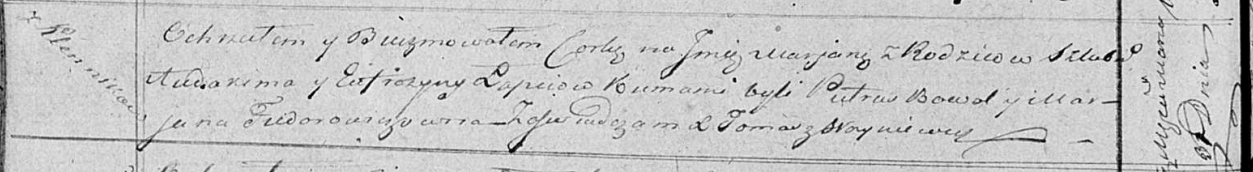 z Klennikow
Ochrzciłem y Bierzmowałem Corkę na Jmię Marjanę z Rodzicow Szlub:
Audakima y Eufrozyny Łapciow Kumami byli Pietras Kowal y Mar-
jana Fiedorowiczowna – Zaświadczam X Tomasz Woyniewicz
Dnia